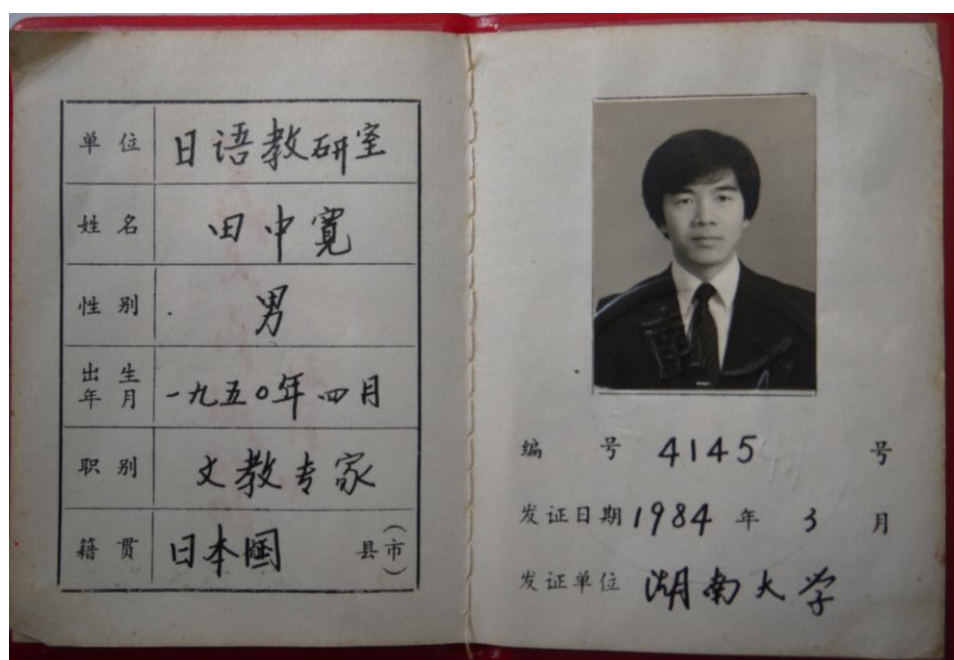 单位 日语教研室
姓名 田中寛
性别 男
出生年月 一九五〇年四月
职别 文教专家
籍贯 日本國 县(市)
编号 4145 号
发证日期 1984 年 3 月
发证单位 湖南大学